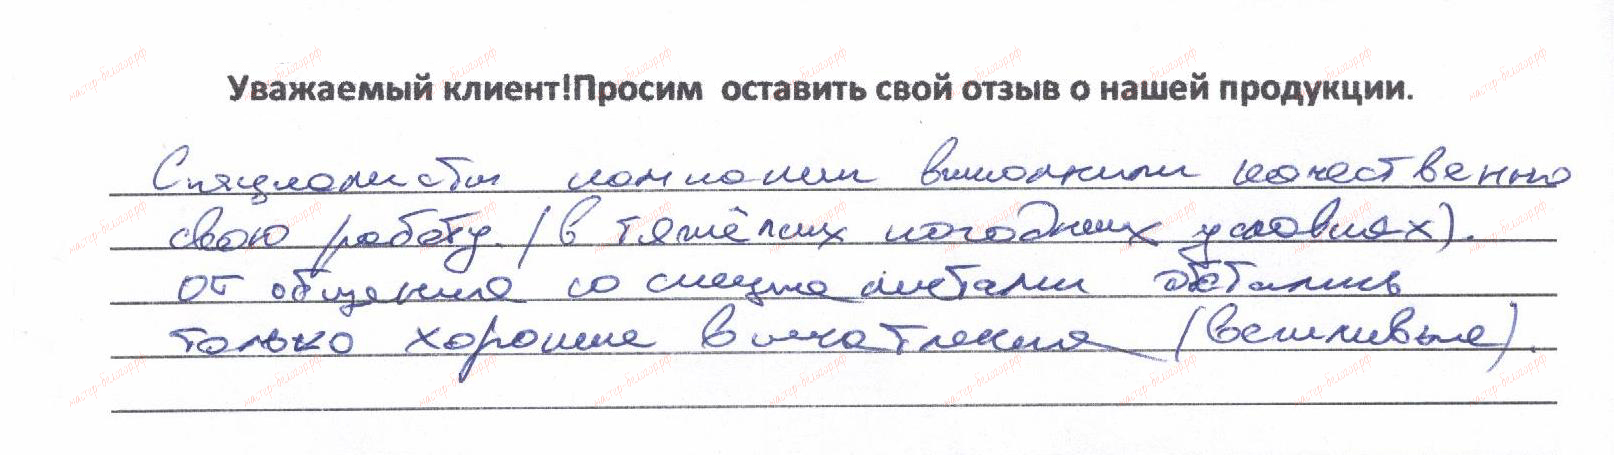 Уважаемый клиент!Просим оставить свой отзыв о нашей продукции.
Специалисты компании выполнили качественно
свою работу. (в тяжёлых погодных условиях).
от общения со специалистами остались
только хорошие впечатления (вежливые).